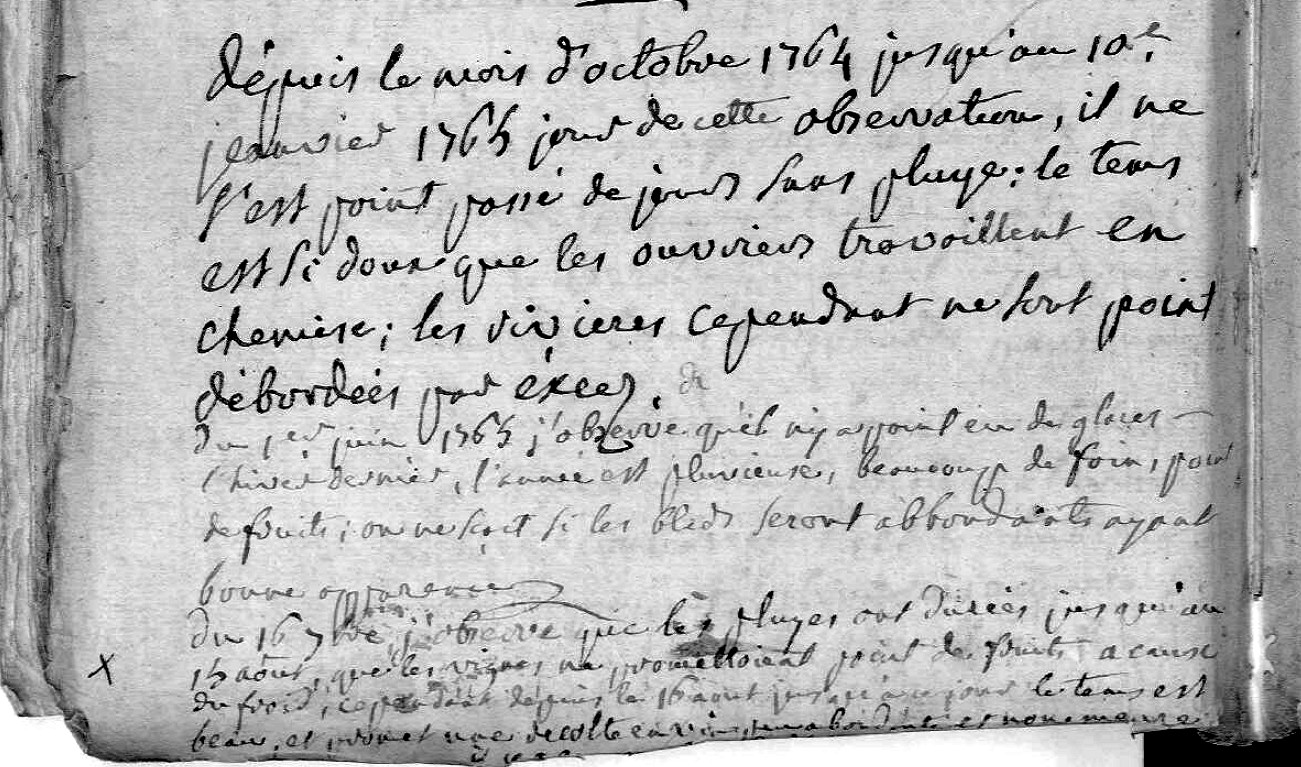 dépuis le mois d'octobre 1764 jusqu'au 10e.
jeanvier 1765 jour de cette observation, il ne
s'est point passé de jours sans pluye; le tems
est si doux que les ouvriers travaillent en
chemise; les rivieres cependant ne sont point
débordées par éxcez.
du 1er juin 1765 j'observe qu'il n'y a point eu de glaces
l'hiver dernier, l'année est pluvieuse, beaucoup de foin, point
de fruits; on ne sçait si les bleds seront abbondants ayant
bonne apparence
du 16 7bre j'observe que les pluyes ont durées jusqu'au
X 15 août, que les vignes ne promettoient point de fruits a cause
du froid, cependant dépuis le 16 aout jusqu'au jour le tems est
beau, et promet une recolte en vin